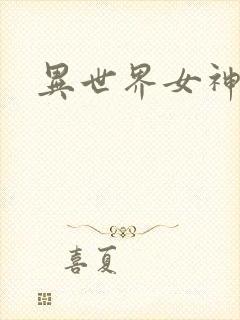 異世界女神
喜夏